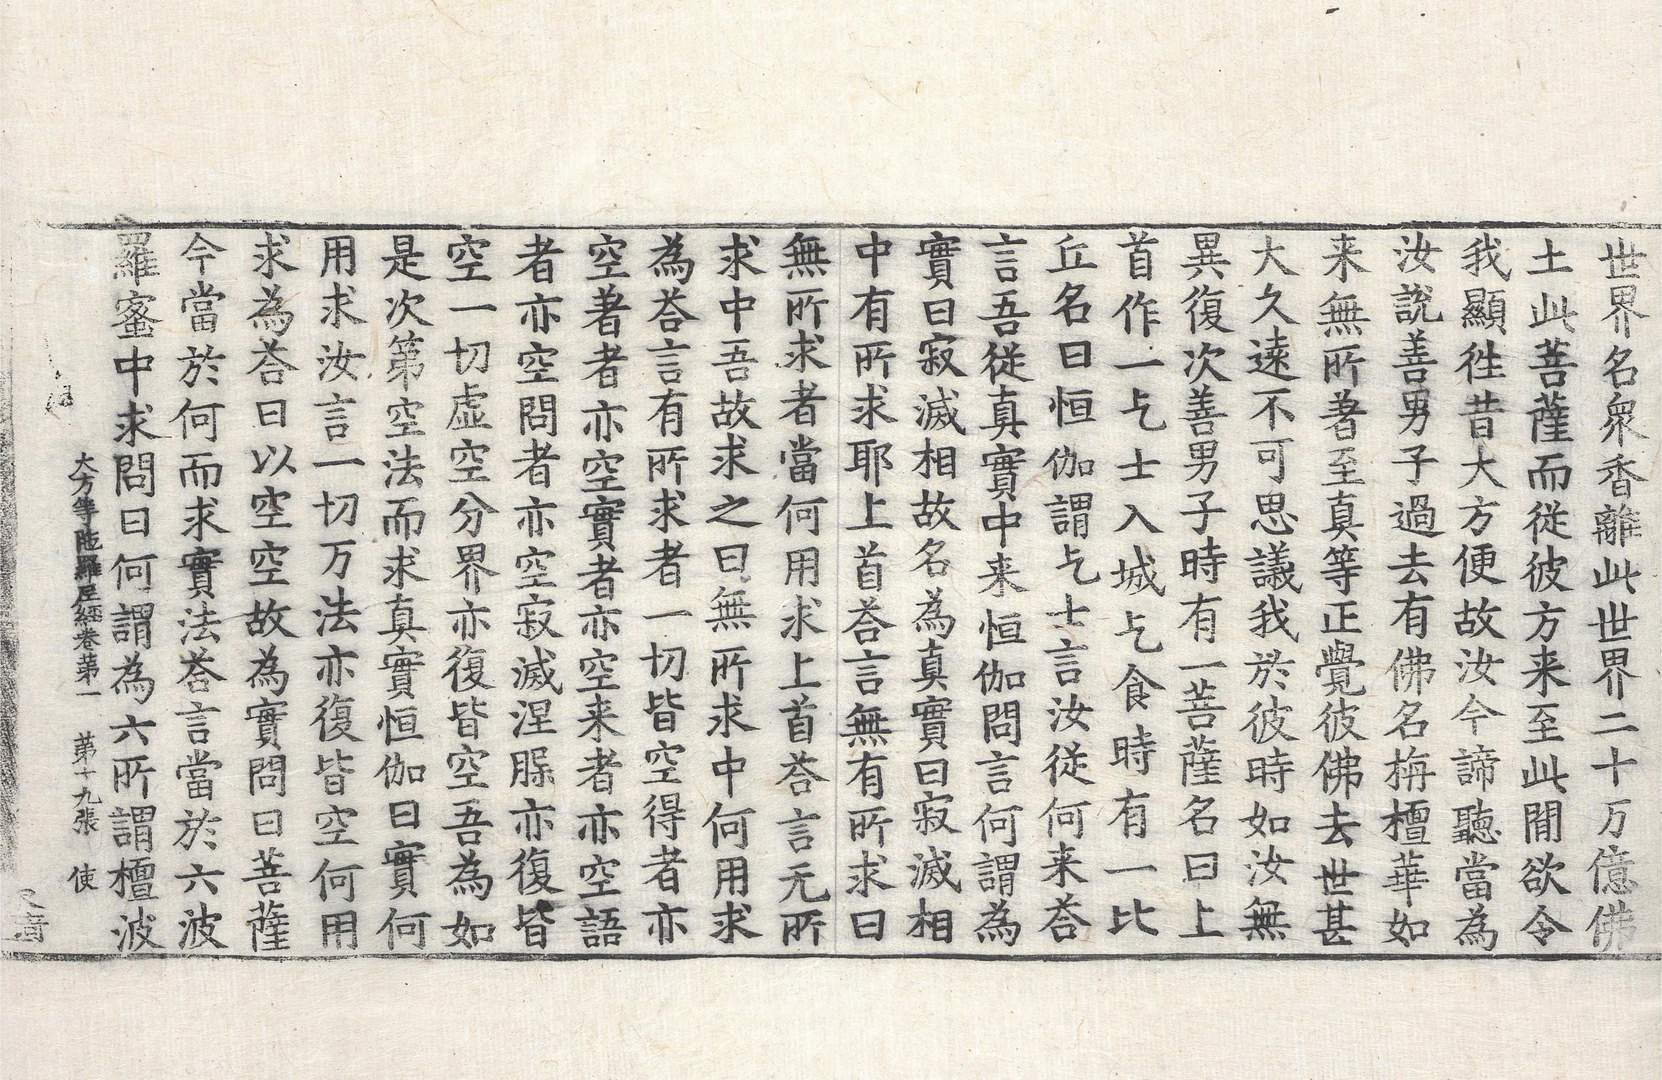 世界名衆香離此世界二十万億佛
土此菩薩而従彼方来至此間欲令
我顯徃昔大方便故汝今諦聽當為
汝說善男子過去有佛名栴檀華如
来無所著至真等正覺彼佛去世甚
大久遠不可思議我於彼時如汝無
異復次善男子時有一菩薩名曰上
首作一乞士入城乞食時有一比
丘名曰恒伽謂乞士言汝従何来荅
言吾従真實中来恒伽問言何謂為
實曰寂滅相故名為真實曰寂滅相
中有所求耶上首荅言無有所求曰
無所求者當何用求上首荅言无所
求中吾故求之曰無所求中何用求
為荅言有所求者一切皆空得者亦
空著者亦空實者亦空来者亦空語
者亦空問者亦空寂滅涅槃亦復皆
空一切虚空分界亦復皆空吾為如
是次第空法而求真實恒伽曰實何
用求汝言一切万法亦復皆空何用
求為荅曰以空空故為實問曰菩薩
今當於何而求實法荅言當於六波
羅蜜中求問曰何謂為六所謂檀波
大方等陁羅尼經卷第一 第十九張 使